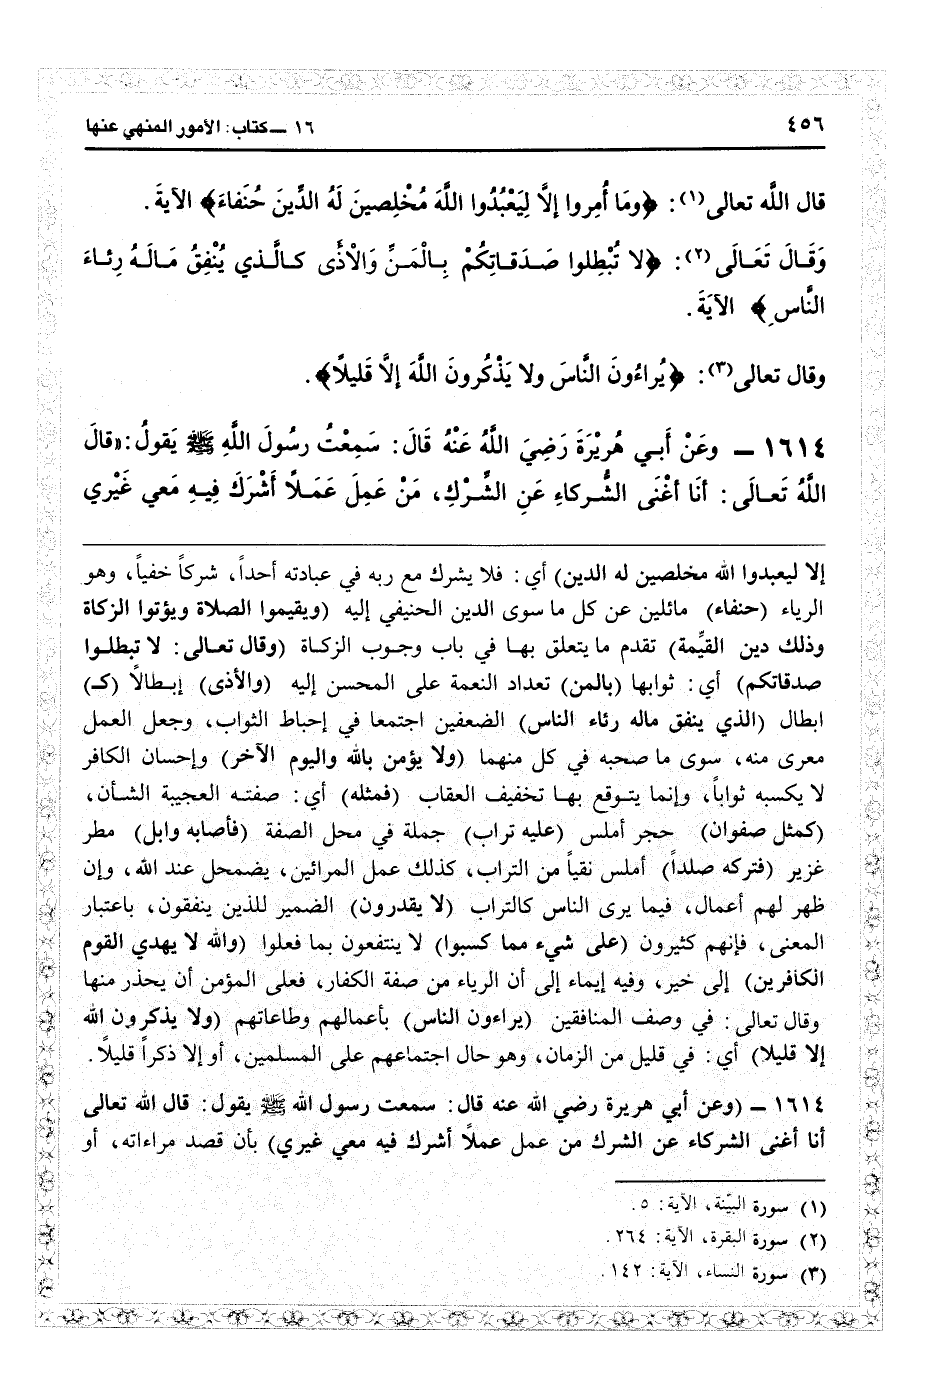 ٤٥٦
١٦ ــ كتاب: الأمور المنهي عنها
قال اللَّه تعالى(١): ﴿ومَا أُمِروا إلَّا لِيَعْبُدُوا اللَّهَ مُخْلِصينَ لَهُ الدِّينَ حُنَفاءَ﴾ الآيةَ.
وَقَـالَ تَعَـالَى (٢): ﴿لا تُبْطِلوا صَدَقـاتِكُمْ بِـالْمَـنِّ وَالْأذَى كـالَّـذي يُنْفِقُ مَـالَـهُ رِئـاءَ
النَّاسِ﴾ الآيَةَ.
وقال تعالى(٣): ﴿يُراءُونَ النَّاسَ ولا يَذْكُرونَ اللَّهَ إلَّا قَليلًا﴾.
١٦١٤ ــ وعَنْ أبـي هُرَيْرَةَ رَضِيَ اللَّهُ عَنْهُ قَالَ: سَمِعْتُ رسُولَ اللَّهِ ﷺ يَقولُ: «قالَ
اللَّهُ تَعـالَى: أنَا أغْنَى الشُّركاءِ عَنِ الشِّرْكِ، مَنْ عَمِلَ عَمَـلًا أشْرَكَ فِيـهِ مَعي غَيْري
إلا ليعبدوا الله مخلصين له الدين) أي: فلا يشرك مع ربه في عبادته أحداً، شركاً خفياً، وهو
الرياء (حنفاء) مائلين عن كل ما سوى الدين الحنيفي إليه (ويقيموا الصلاة ويؤتوا الزكاة
وذلك دين القيِّمة) تقدم ما يتعلق بهـا في باب وجـوب الزكـاة (وقال تعـالى: لا تبطلـوا
صدقاتكم) أي: ثوابها (بالمن) تعداد النعمة على المحسن إليه (والأذى) إبطـالًا (كـ)
ابطال (الذي ينفق ماله رئاء الناس) الضعفين اجتمعا في إحباط الثواب، وجعل العمل
معرى منه، سوى ما صحبه في كل منهما (ولا يؤمن بالله واليوم الآخر) وإحسان الكافر
لا يكسبه ثواباً، وإنما يتـوقع بهـا تخفيف العقاب (فمثله) أي: صفتـه العجيبة الشـأن،
(كمثل صفوان) حجر أملس (عليه تراب) جملة في محل الصفة (فأصابه وابل) مطر
غزير (فتركه صلداً) أملس نقياً من التراب، كذلك عمل المرائين، يضمحل عند الله، وإن
ظهر لهم أعمال، فيما يرى الناس كالتراب (لا يقدرون) الضمير للذين ينفقون، باعتبار
المعنى، فإنهم كثيرون (على شيء مما كسبوا) لا ينتفعون بما فعلوا (والله لا يهدي القوم
الكافرين) إلى خير، وفيه إيماء إلى أن الرياء من صفة الكفار، فعلى المؤمن أن يحذر منها
وقال تعالى: في وصف المنافقين (يراءون الناس) بأعمالهم وطاعاتهم (ولا يذكرون الله
إلا قليلا) أي: في قليل من الزمان، وهو حال اجتماعهم على المسلمين، أو إلا ذكراً قليلاً.
١٦١٤ ــ (وعن أبي هريرة رضي الله عنه قال: سمعت رسول الله ﷺ يقول: قال الله تعالى
أنا أغنى الشركاء عن الشرك من عمل عملاً أشرك فيه معي غيري) بأن قصد مراءاته، أو
(١) سورة البيّنة، الآية: ٥.
(٢) سورة البقرة، الآية: ٢٦٤.
(٣) سورة النساء، الآية: ١٤٢.